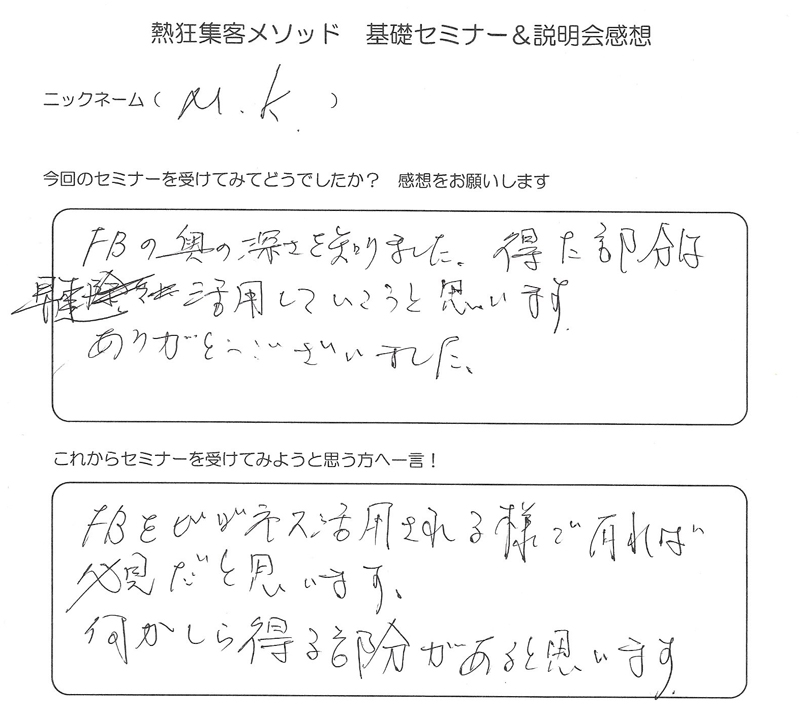 熱狂集客メソッド　基礎セミナー＆説明会感想
ニックネーム（ M.K. ）
今回のセミナーを受けてみてどうでしたか？　感想をお願いします
FBの奥の深さを知りました。得た部分は
活用していこうと思います。
ありがとうございました。
これからセミナーを受けてみようと思う方へ一言！
FBをビジネス活用される様で有れば
必見だと思います。
何かしら得る部分があると思います。